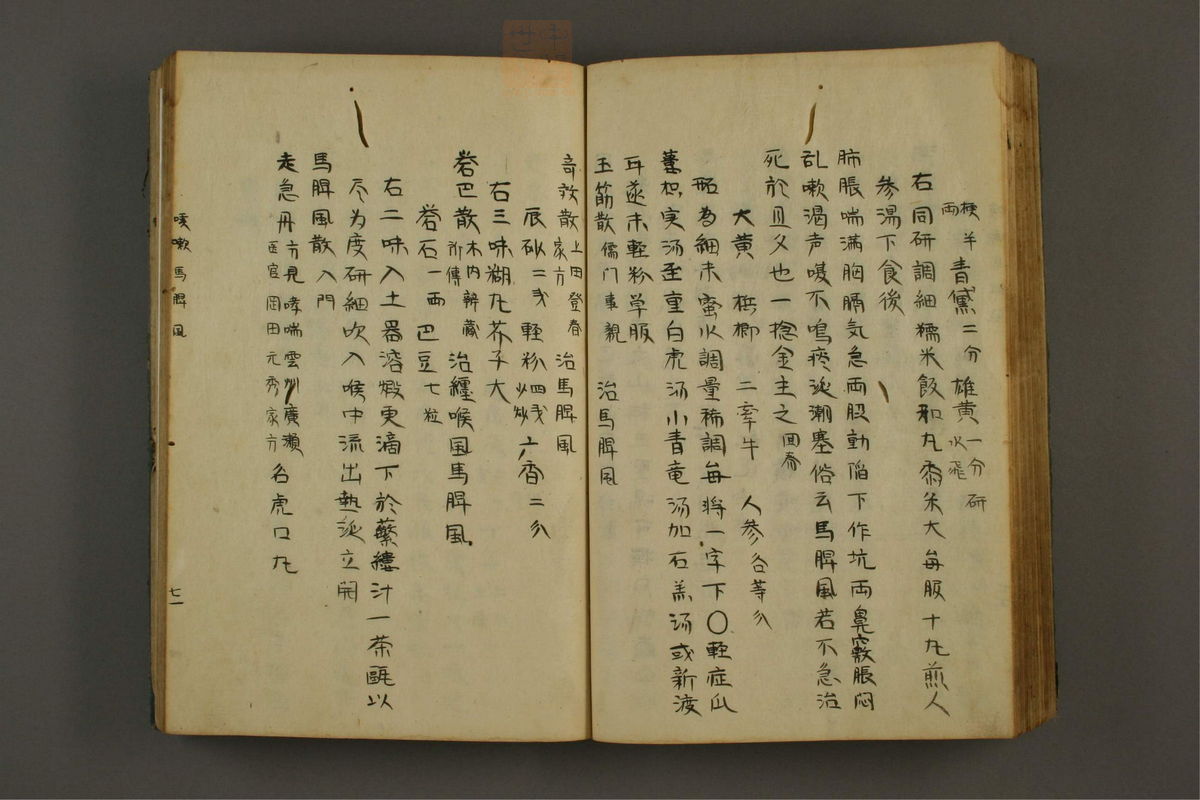 梗半両 青黛二分 雄黄一分水飛 研
右同研調細糯米飯和丸黍米大毎服十丸煎人
参湯下食後
肺脹喘満胸膈気急両股動陥下作坑両鼻竅脹悶
乱嗽渇声嗄不鳴痰涎潮塞俗云馬脾風若不急治
死於旦夕也一捻金主之回春
大黄 梹榔 二牽牛 人参各等分
右為細末蜜水調量稀調毎将一字下〇軽症瓜
蔞枳実湯至重白虎湯小青竜湯加石羔湯或新渡
耳遂末軽粉単服
玉筋散儒门事親 治馬脾風
奇效散上田登春家方 治馬脾風
辰砂二戔 軽粉四戔少炒 丁香二分
右三味糊丸芥子大
礬巴散木内辨蔵所傳 治纏喉風馬脾風
礬石一両 巴豆七粒
右二味入土器溶煅更滴下於蘩縷汁一茶甌以
尽为度研細吹入喉中流出熱涎立開
馬脾風散入門
走急丹方見哮喘雲州廣瀬医官岡田元秀家方 名虎口丸
咳嗽 馬脾風
七一